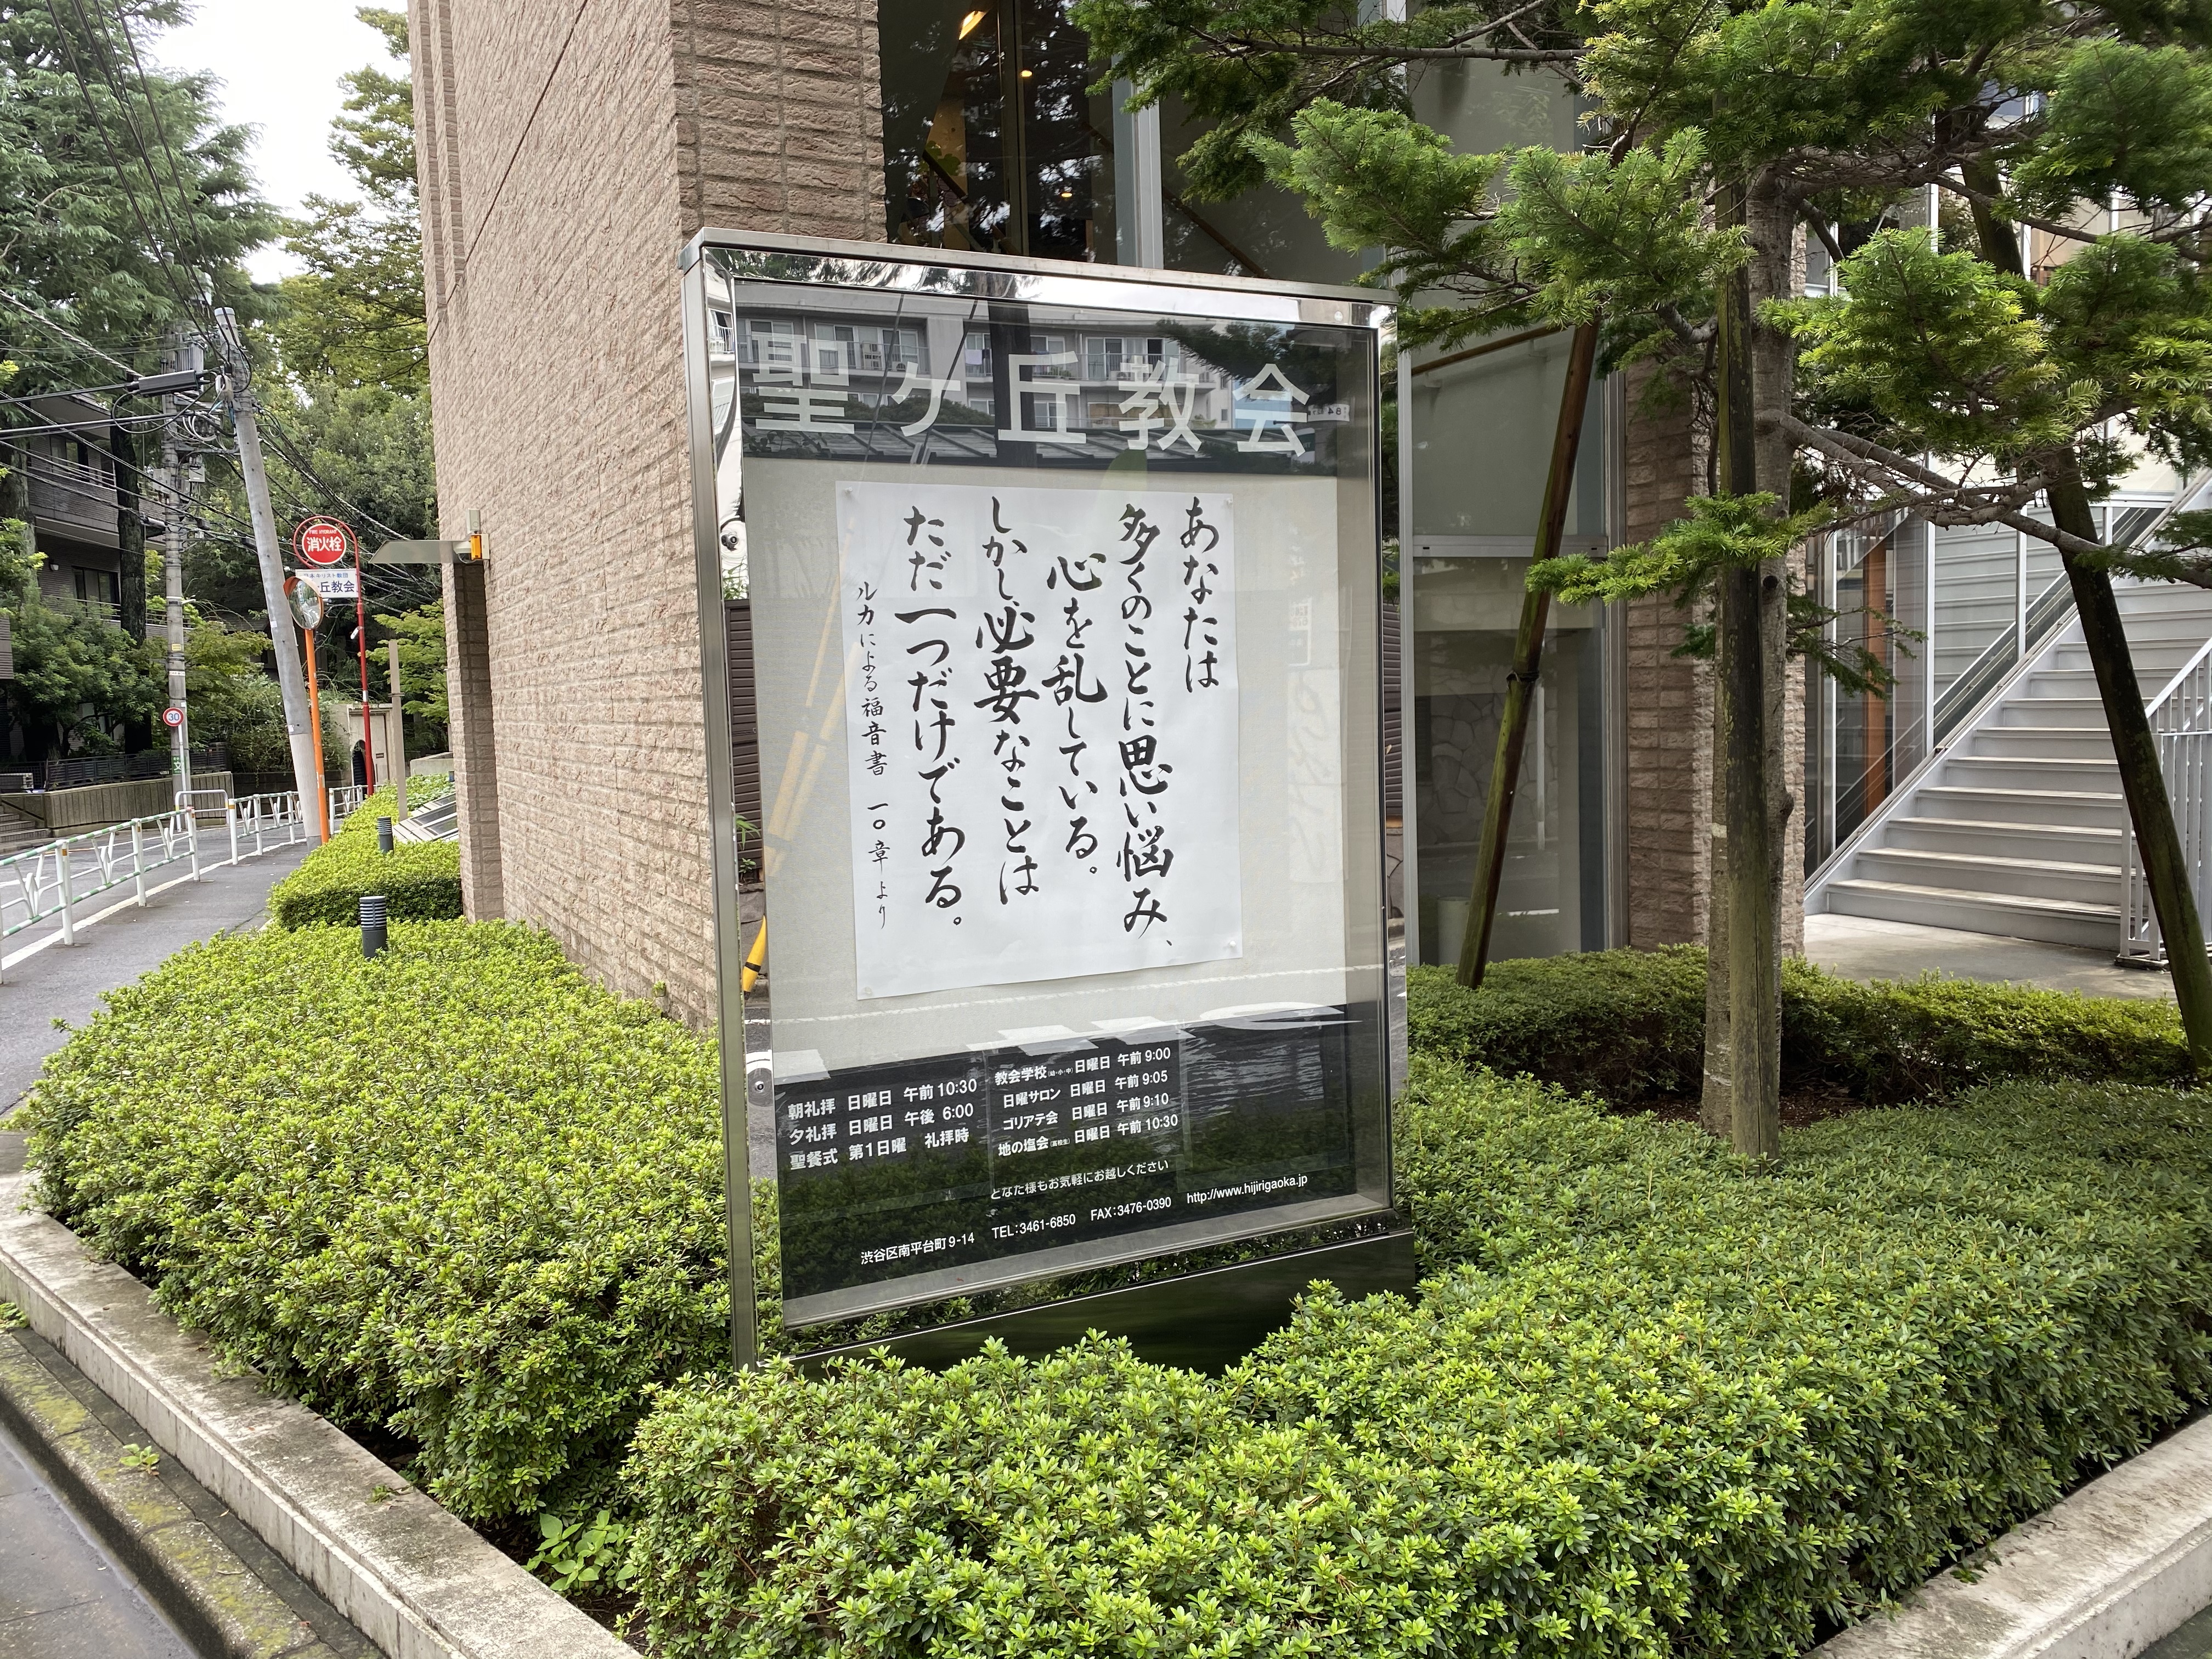 聖ヶ丘教会
あなたは
多くのことに思い悩み、
心を乱している。
しかし必要なことは
ただ一つだけである。
ルカによる福音書 一〇章より
朝礼拝 日曜日 午前 10:30
夕礼拝 日曜日 午後 6:00
聖餐式 第1日曜 礼拝時
教会学校(幼・小・中) 日曜日 午前 9:00
日曜サロン 日曜日 午前 9:05
ゴリアテ会 日曜日 午前 9:10
地の塩会(高校生) 日曜日 午前 10:30
どなた様もお気軽にお越しください
渋谷区南平台町9-14 TEL:3461-6850 FAX:3476-0390 http://www.hijirigaoka.jp
消火栓
丘教会
30